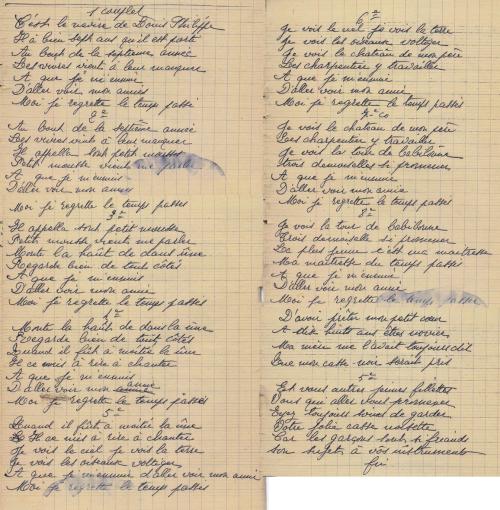 1 couplet
C'est le navire de Louis Philippe
Il à bien sept ans qu'il est parti
Au bout de la septieme année
Les vivres vient à leur manquer
A que je m'ennui
D'aller voir mon amies
Moi je regrette le temps passé
2e
Au bout de la septième année
Les vivres vient à leur manquer
Il appella son petit mousse
Petit mousse vient me parler
A que je m'ennuis
D'aller voir mon amies
Moi je regrette le temps passés
3e
Il appella sont petit mousse
Petit mousse vient me parler
Monte la haut de dans l'ûne
Regarde bien de tout côtés
A que je m'ennui
D'aller voir mon amie
Moi je regrette le temps passés
4e
Monte la haut de dans la ûne
Regarde bien de tout côtés
Quand il fût à moitié la ûne
Il ce mis à rire à chanter
A que je m'ennuis
D'aller voir mon amie
Moi je regrette le temps passés
5e
Quand il fût à moitié la ûne
Il ce mis à rire à chanter
Je vois le ciel je vois la terre
Je vois les oiseaux voltiger
A que je m'ennui d'aller voir mon amie
Moi je regrette le temps passés
6e
Je vois le ciel je vois la terre
Je vois les oiseaux voltiger
Je vois le chateau de mon père
Les charpentiers y travailler
A que je m'ennui
D'aller voir mon amie
Moi je regrette le temps passés
7e
Je vois le chateau de mon père
Les charpentiers y travailler
Je vois la tour de Babilône
Trois demoiselles si promener
A que je m'ennui
D'aller voir mon amie
Moi je regrette le temps passés
8e
Je vois la tour de Babilonne
Trois demoiselle si promener
La plus jeune c'est ma maitresse
Ma maitresse du temps passés
A que je m'ennui
D'aller voir mon amie
Moi je regrette le temps passés
D'avoir prêter mon petit cœur
A dix huits ans êtres
Ma mère me l'avait toujours dit
Que mon casse-noix serait pris
Et vous autres jeunes fillettes
Vous qui aller vous promener
Ayez toujours soins de garder
Votre jolie casse noisette
Car les garçons sont si friands
son sujets à vos instruments
fin